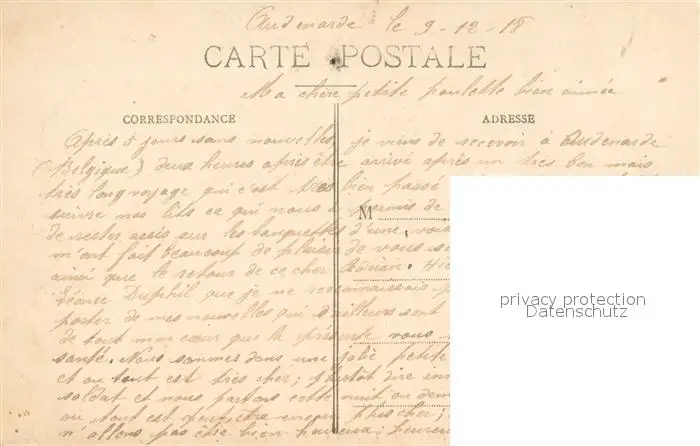 Audenarde le 9-12-18
CARTE POSTALE
Ma chère petite poulette bien aimée
CORRESPONDANCE
ADRESSE
Après 5 jours sans nouvelles, je viens de recevoir à Audenarde
(Belgique) deux heures après être arrivé après un très bon mais
très long voyage qui c'est très bien passé
suivre nos lits ce qui nous a permis de
M
de rester assis sur les banquettes d'une
m'ont fait beaucoup de plaisir de vous
ainsi que le retour de ce cher
Duphil que je ne reconnaissais
poster de mes nouvelles qui d'ailleurs sont
de tout mon cœur que la présente vous
santé. Nous sommes dans une jolie petite
et ou tout est très cher; plutôt dire
soldat et nous partons cette nuit ou
ou tout est peut être encore plus cher;
m'allons pas être bien heureux; heureu
privacy protection
Datenschutz